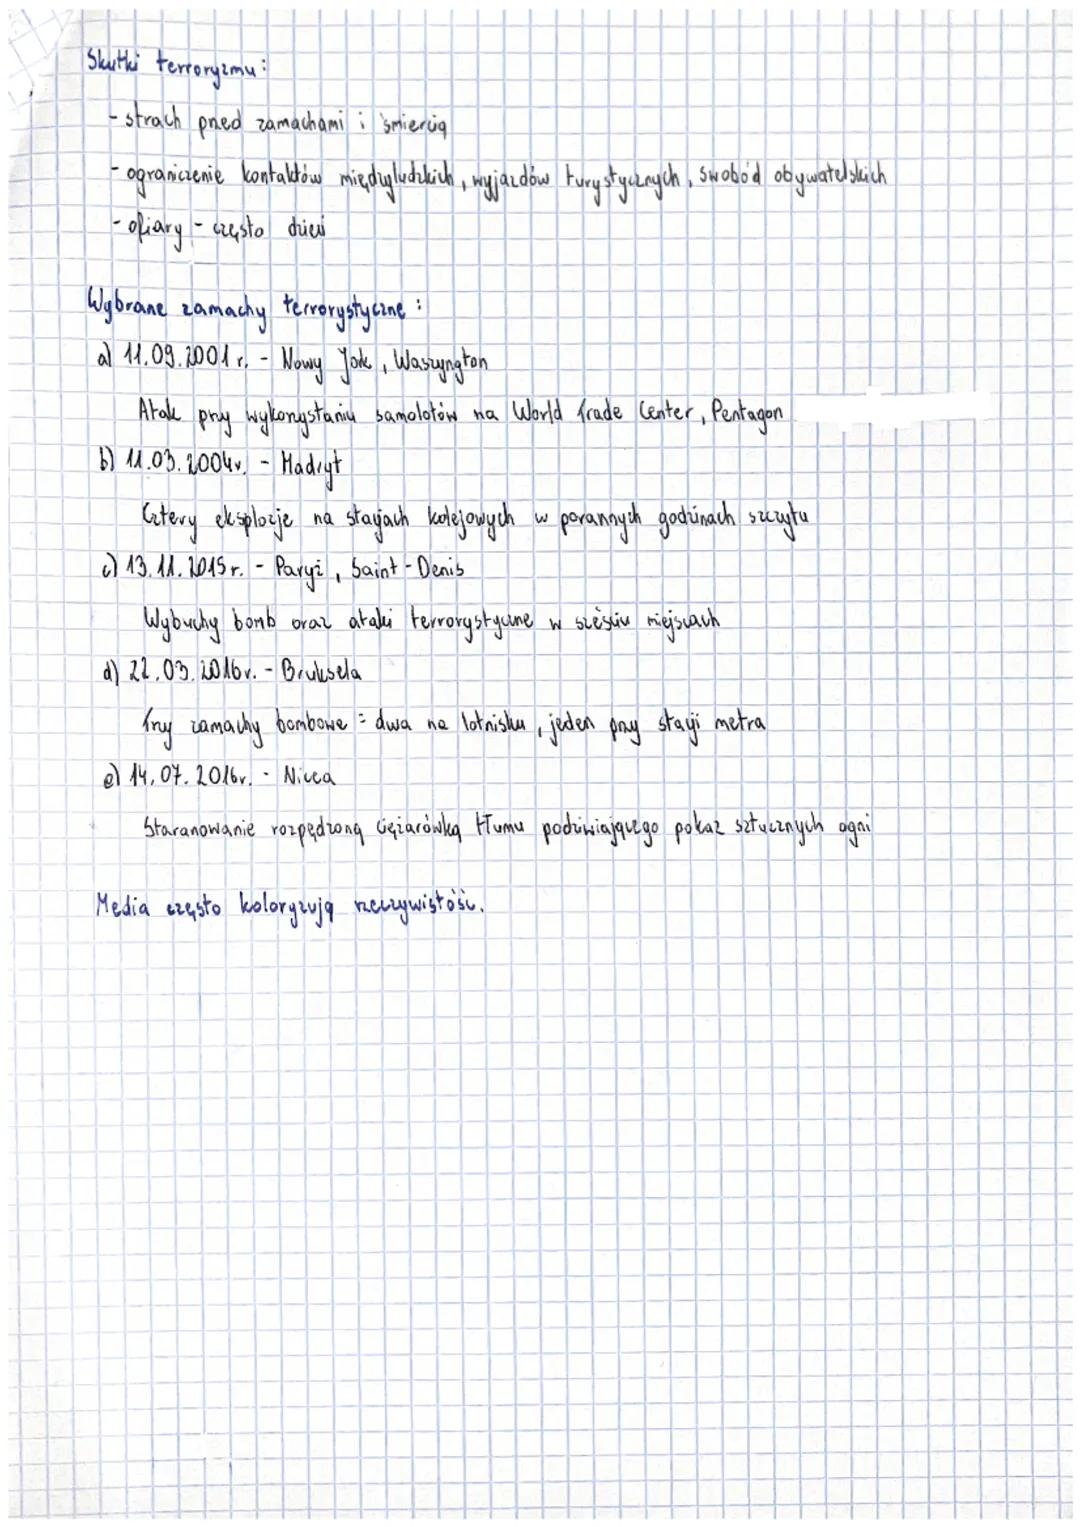 Skutki terroryzmu:
- strach przed zamachami i śmiercią
- ograniczenie kontaktów międzyludzkich, wyjazdów turystycznych, swobód obywatelskich
- ofiary - często dzieci
Wybrane zamachy terrorystyczne:
a) 11.09.2001 r. - Nowy Jork, Waszyngton
Atak przy wykorzystaniu samolotów na World Trade Center, Pentagon
b) 11.03.2004r. - Madryt
Cztery eksplozje na stacjach kolejowych w porannych godzinach szczytu
c) 13.11.2015 r. - Paryż, Saint-Denis
Wybuchy bomb oraz ataki terrorystyczne w sześciu miejscach
d) 22.03.2016r. - Bruksela
Trzy zamachy bombowe: dwa na lotnisku, jeden przy stacji metra
e) 14.07.2016r. - Nicea
Staranowanie rozpędzoną ciężarówką tłumu podziwiającego pokaz sztucznych ogni
Media często koloryzują rzeczywistość.